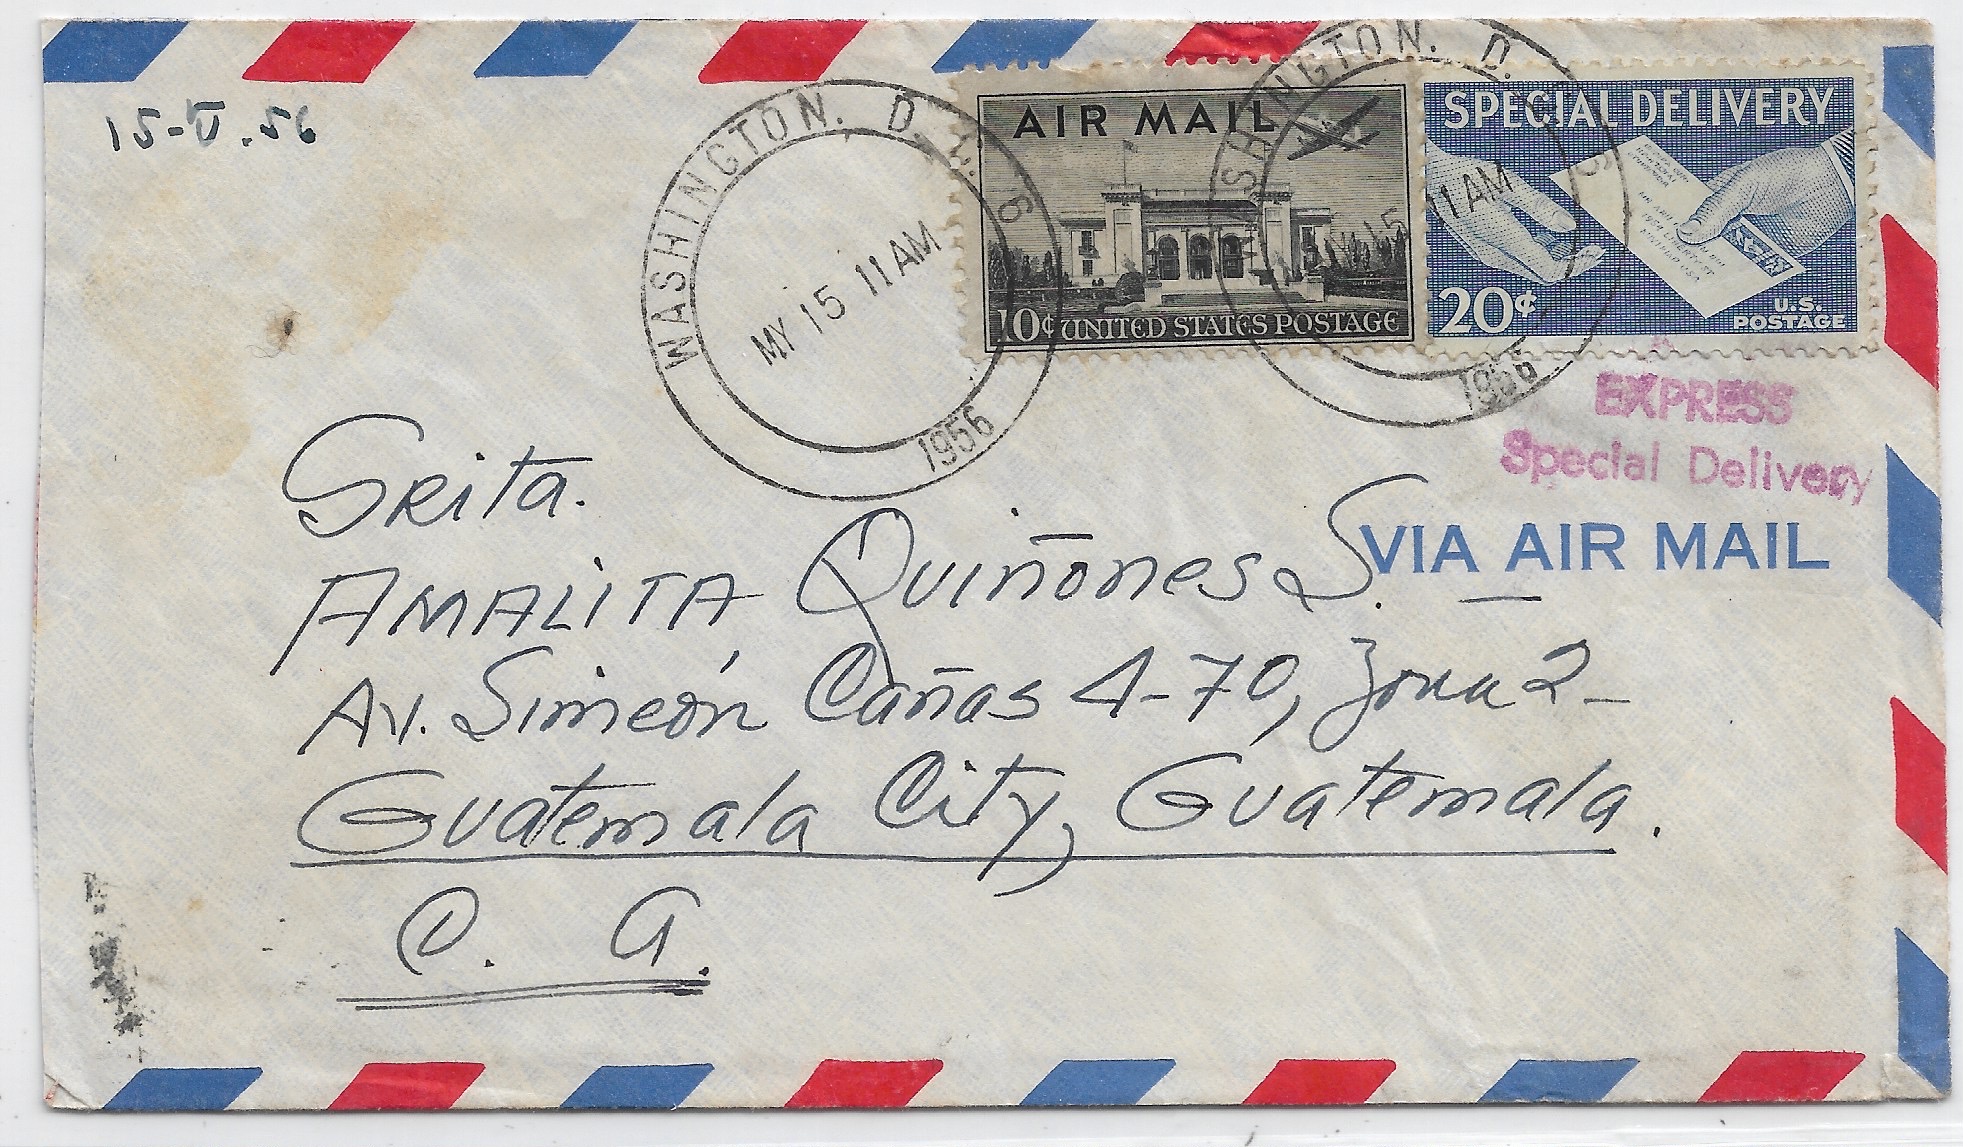 15-V.56
WASHINGTON, D.C. 6
MY 15 11 AM
1956
WASHINGTON, D.
15 11 AM
1956
AIR MAIL
10¢ UNITED STATES POSTAGE
SPECIAL DELIVERY
20¢
U.S.
POSTAGE
EXPRESS
Special Delivery
VIA AIR MAIL
Srita.
AMALITA Quiñones S. —
Av. Simeón Cañas 4-70, Zona 2-
Guatemala City, Guatemala.
C. A.